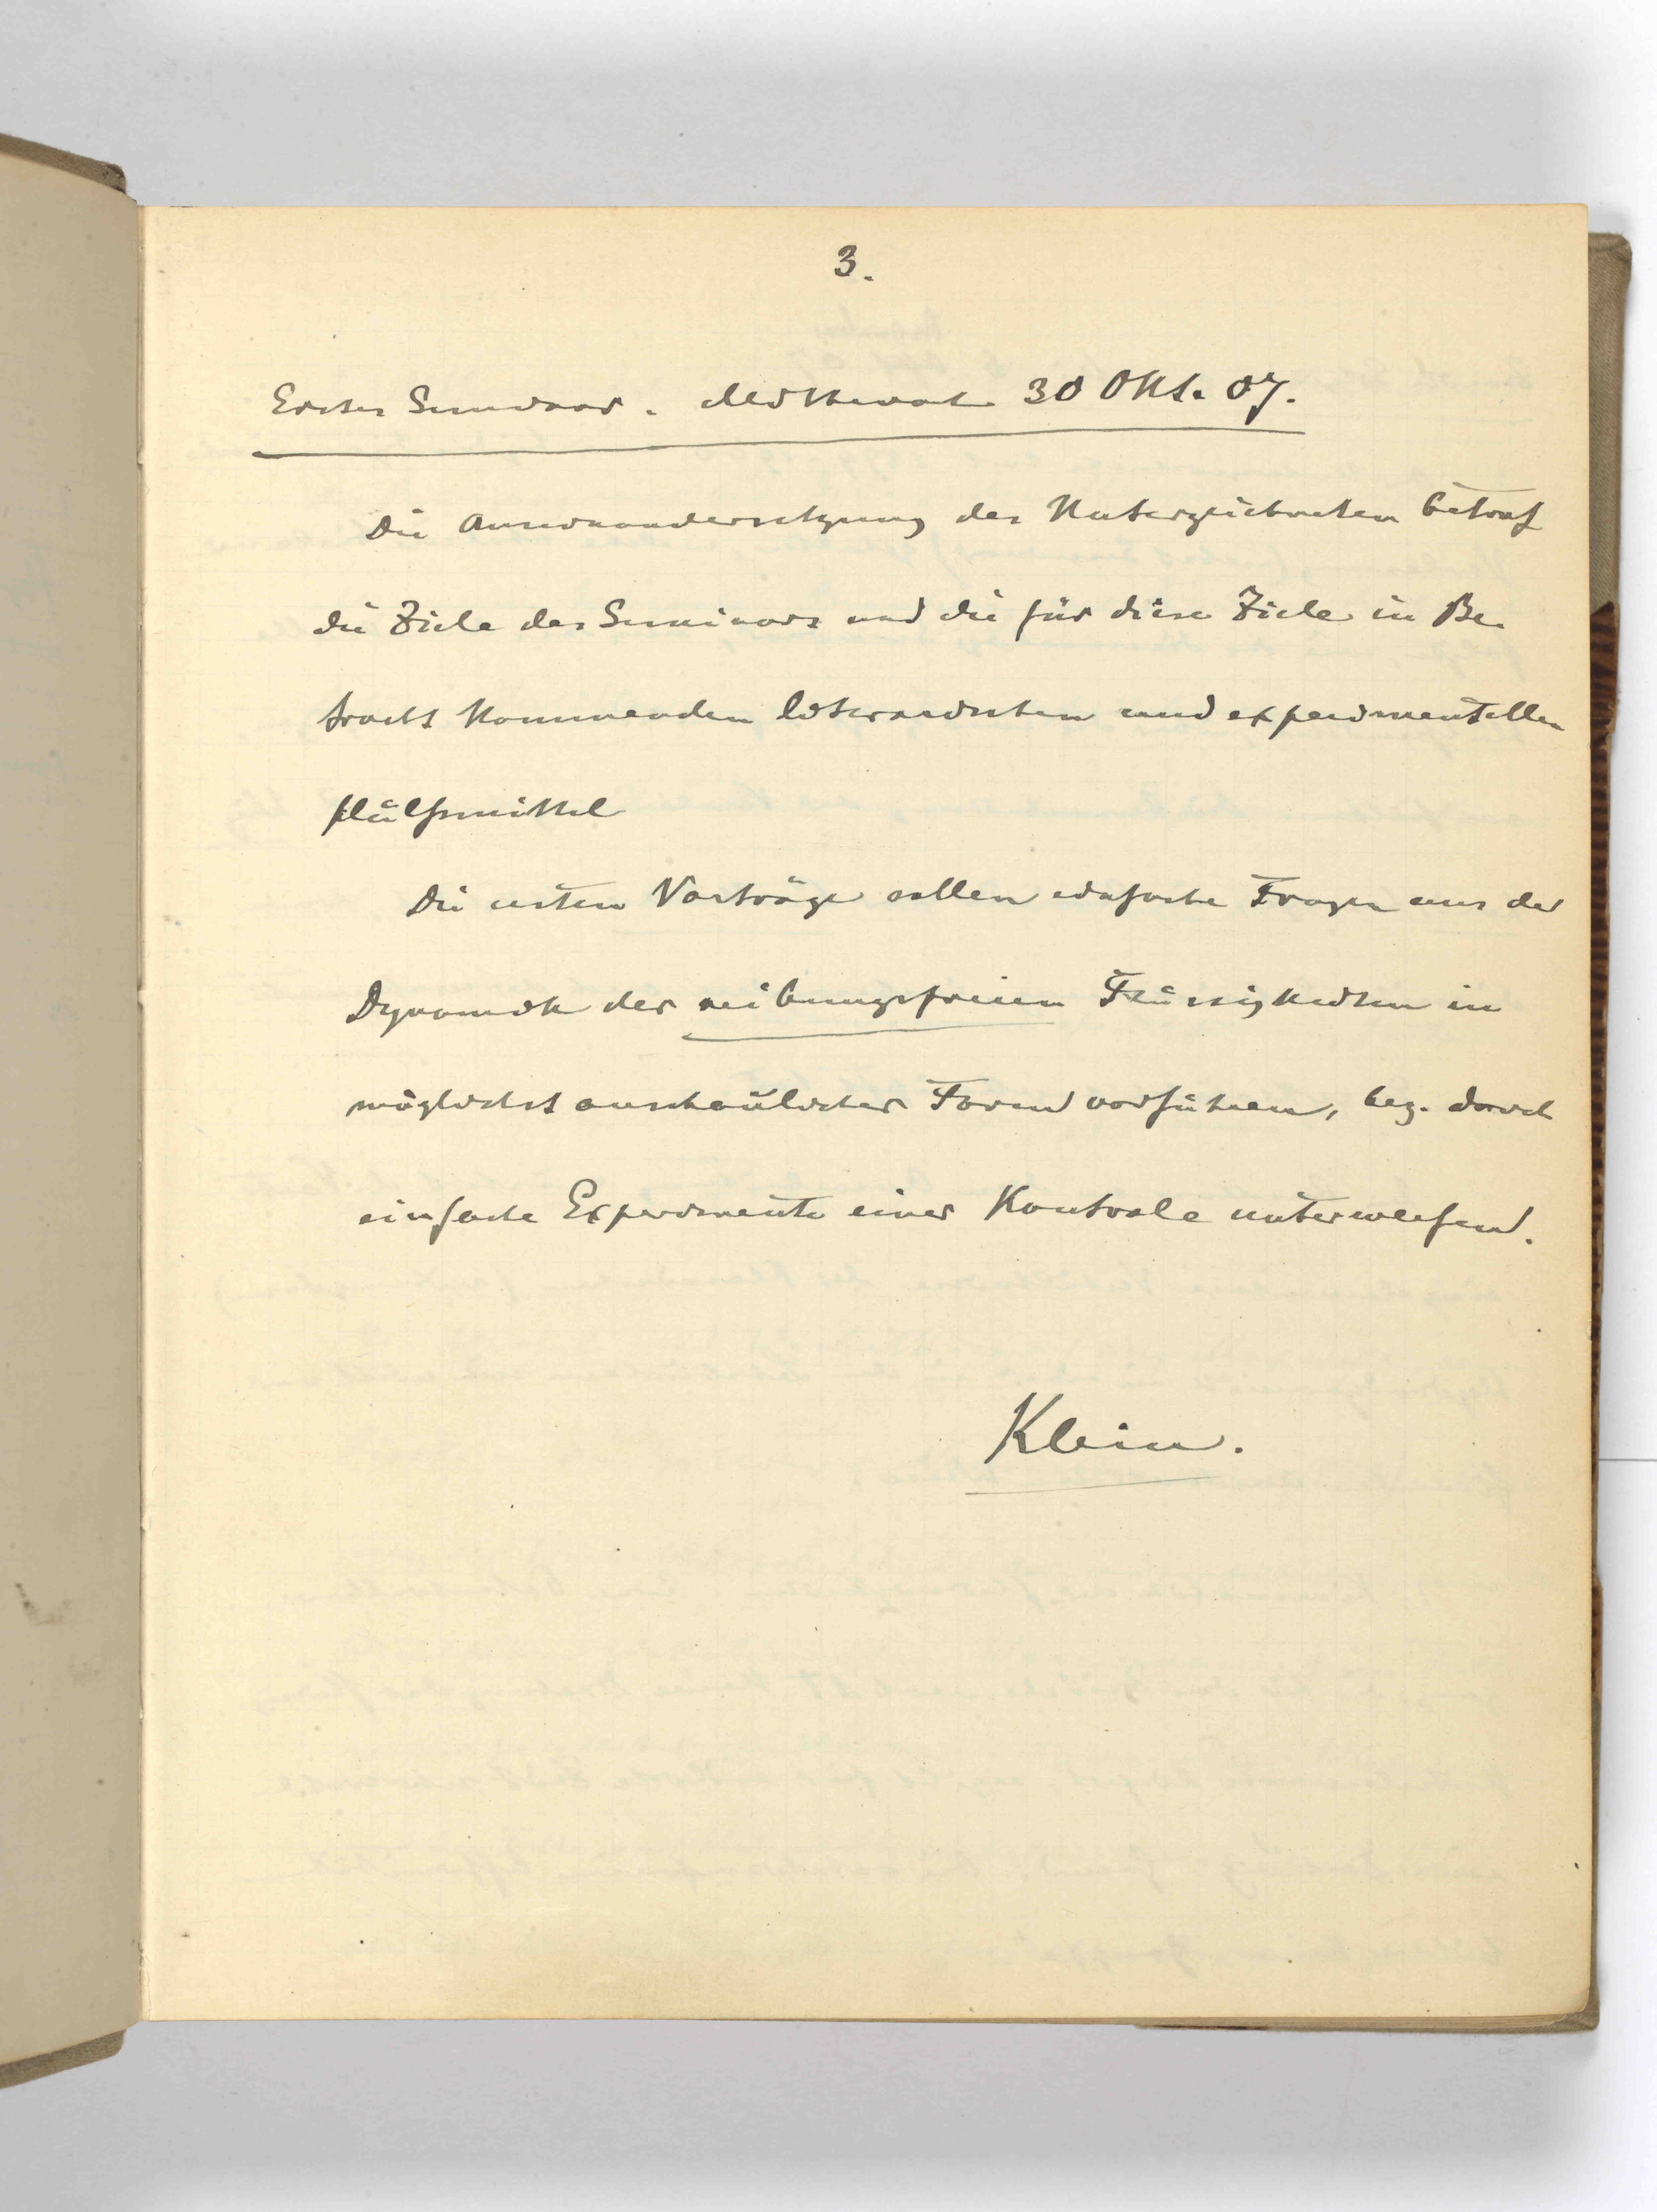 3.
Erstes Seminar. Mittwoch 30 Okt. 07.
Die Auseinandersetzung des Unterzeichneten betraf
die Ziele des Seminars und die für diese Ziele in Be-
tracht kommenden literarischen und experimentellen
Hülfsmittel
Die ersten Vorträge sollen einfache Fragen aus der
Dynamik der reibungsfreien Flüssigkeiten in
möglichst anschaulicher Form vorführen, bez. durch
einfache Experimente einer Kontrole unterwerfen.
Klein.